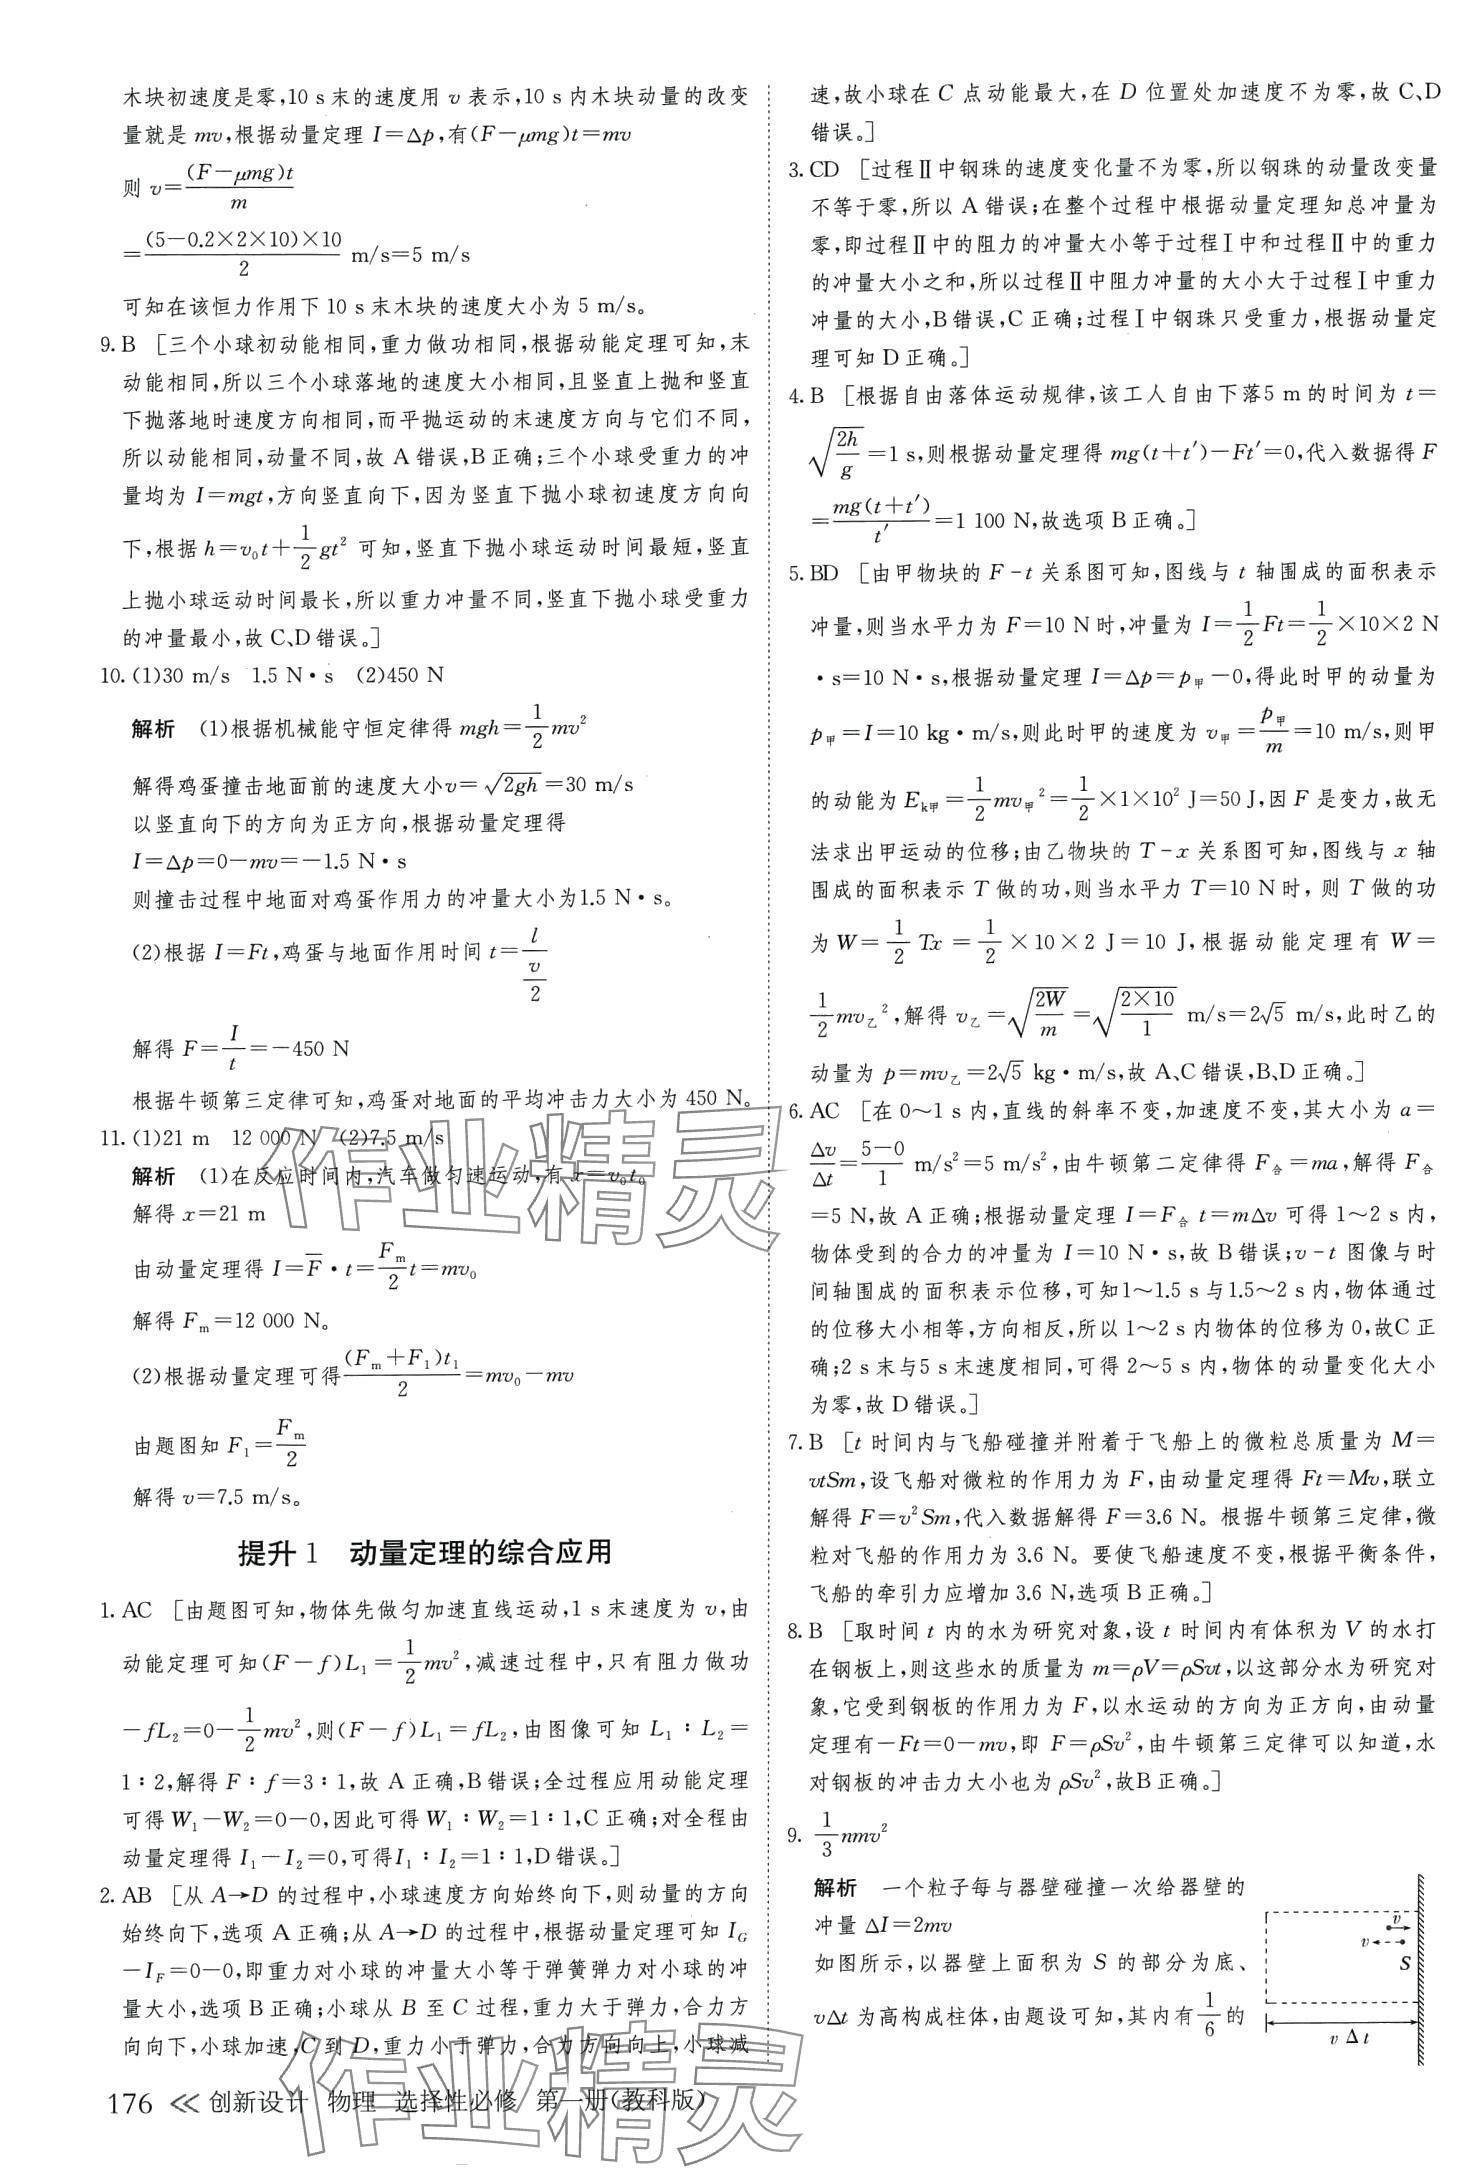 木块初速度是零,10 s末的速度用 v 表示,10 s内木块动量的改变
量就是 mv,根据动量定理 I=Δp,有(F-μmg)t=mv
则 v=(F-μmg)t/m
=(5-0.2×2×10)×10/2 m/s=5 m/s
可知在该恒力作用下 10 s末木块的速度大小为 5 m/s。
9. B [三个小球初动能相同,重力做功相同,根据动能定理可知,末
动能相同,所以三个小球落地的速度大小相同,且竖直上抛和竖直
下抛落地时速度方向相同,而平抛运动的末速度方向与它们不同,
所以动能相同,动量不同,故 A 错误,B正确;三个小球受重力的冲
量均为 I=mgt,方向竖直向下,因为竖直下抛小球初速度方向向
下,根据 h=v₀t+1/2gt² 可知,竖直下抛小球运动时间最短,竖直
上抛小球运动时间最长,所以重力冲量不同,竖直下抛小球受重力
的冲量最小,故 C、D 错误。]
10. (1)30 m/s 1.5 N·s (2)450 N
解析 (1)根据机械能守恒定律得 mgh=1/2mv²
解得鸡蛋撞击地面前的速度大小v=√2gh=30 m/s
以竖直向下的方向为正方向,根据动量定理得
I=Δp=0-mv=-1.5 N·s
则撞击过程中地面对鸡蛋作用力的冲量大小为1.5 N·s。
(2)根据 I=Ft,鸡蛋与地面作用时间 t=l/(v/2)
解得 F=I/t=-450 N
根据牛顿第三定律可知,鸡蛋对地面的平均冲击力大小为 450 N。
11. (1)21 m 12 000 N (2)7.5 m/s
解析 (1)在反应时间内,汽车做匀速运动,有 x=v₀t₀
解得 x=21 m
由动量定理得 I=F̅·t=Fₘ/2t=mv₀
解得 Fₘ=12 000 N。
(2)根据动量定理可得(Fₘ+F₁)t₁/2=mv₀-mv
由题图知 F₁=Fₘ/2
解得 v=7.5 m/s。
提升1 动量定理的综合应用
1. AC [由题图可知,物体先做匀加速直线运动,1 s末速度为 v,由
动能定理可知(F-f)L₁=1/2mv²,减速过程中,只有阻力做功
-fL₂=0-1/2mv²,则(F-f)L₁=fL₂,由图像可知 L₁∶L₂=
1∶2,解得 F∶f=3∶1,故 A 正确,B 错误;全过程应用动能定理
可得 W₁-W₂=0-0,因此可得 W₁∶W₂=1∶1,C 正确;对全程由
动量定理得 I₁-I₂=0,可得I₁∶I₂=1∶1,D错误。]
2. AB [从 A→D 的过程中,小球速度方向始终向下,则动量的方向
始终向下,选项 A 正确;从 A→D 的过程中,根据动量定理可知 I_G
-I_F=0-0,即重力对小球的冲量大小等于弹簧弹力对小球的冲
量大小,选项B正确;小球从 B 至 C 过程,重力大于弹力,合力方
向向下,小球加速,C 到 D,重力小于弹力,合力方向向上,小球减
176 ≪ 创新设计 物理 选择性必修 第一册(教科版)
速,故小球在 C 点动能最大,在 D 位置处加速度不为零,故 C、D
错误。]
3. CD [过程Ⅱ中钢珠的速度变化量不为零,所以钢珠的动量改变量
不等于零,所以 A 错误;在整个过程中根据动量定理知总冲量为
零,即过程Ⅱ中的阻力的冲量大小等于过程Ⅰ中和过程Ⅱ中的重力
的冲量大小之和,所以过程Ⅱ中阻力冲量的大小大于过程Ⅰ中重力
冲量的大小,B错误,C 正确;过程Ⅰ中钢珠只受重力,根据动量定
理可知 D 正确。]
4. B [根据自由落体运动规律,该工人自由下落5 m的时间为 t=
√(2h/g)=1 s,则根据动量定理得 mg(t+t′)-Ft′=0,代入数据得 F
=mg(t+t′)/t′=1 100 N,故选项 B正确。]
5. BD [由甲物块的 F-t 关系图可知,图线与 t 轴围成的面积表示
冲量,则当水平力为 F=10 N时,冲量为 I=1/2Ft=1/2×10×2 N
·s=10 N·s,根据动量定理 I=Δp=p甲-0,得此时甲的动量为
p甲=I=10 kg·m/s,则此时甲的速度为 v甲=p甲/m=10 m/s,则甲
的动能为 Eₖ甲=1/2mv甲²=1/2×1×10² J=50 J,因 F 是变力,故无
法求出甲运动的位移;由乙物块的 T-x 关系图可知,图线与 x 轴
围成的面积表示 T 做的功,则当水平力 T=10 N时, 则 T 做的功
为 W=1/2Tx=1/2×10×2 J=10 J,根据动能定理有 W=
1/2mv乙²,解得 v乙=√(2W/m)=√(2×10/1) m/s=2√5 m/s,此时乙的
动量为 p=mv乙=2√5 kg·m/s,故 A、C 错误,B、D 正确。]
6. AC [在 0~1 s内,直线的斜率不变,加速度不变,其大小为 a=
Δv/Δt=(5-0)/1 m/s²=5 m/s²,由牛顿第二定律得 F合=ma,解得 F合
=5 N,故 A 正确;根据动量定理 I=F合t=mΔv 可得 1~2 s内,
物体受到的合力的冲量为 I=10 N·s,故 B 错误;v-t 图像与时
间轴围成的面积表示位移,可知1~1.5 s与1.5~2 s内,物体通过
的位移大小相等,方向相反,所以 1~2 s内物体的位移为0,故C正
确;2 s末与5 s末速度相同,可得 2~5 s内,物体的动量变化大小
为零,故 D 错误。]
7. B [t 时间内与飞船碰撞并附着于飞船上的微粒总质量为 M=
vtSm,设飞船对微粒的作用力为 F,由动量定理得 Ft=Mv,联立
解得 F=v²Sm,代入数据解得 F=3.6 N。根据牛顿第三定律,微
粒对飞船的作用力为 3.6 N。要使飞船速度不变,根据平衡条件,
飞船的牵引力应增加 3.6 N,选项 B正确。]
8. B [取时间 t 内的水为研究对象,设 t 时间内有体积为 V 的水打
在钢板上,则这些水的质量为 m=ρV=ρSvt,以这部分水为研究对
象,它受到钢板的作用力为 F,以水运动的方向为正方向,由动量
定理有-Ft=0-mv,即 F=ρSv²,由牛顿第三定律可以知道,水
对钢板的冲击力大小也为 ρSv²,故B正确。]
9. 1/3nmv²
解析 一个粒子每与器壁碰撞一次给器壁的
冲量 ΔI=2mv
如图所示,以器壁上面积为 S 的部分为底、
vΔt 为高构成柱体,由题设可知,其内有1/6的
v
v
S
vΔt
作业精灵
作业精灵